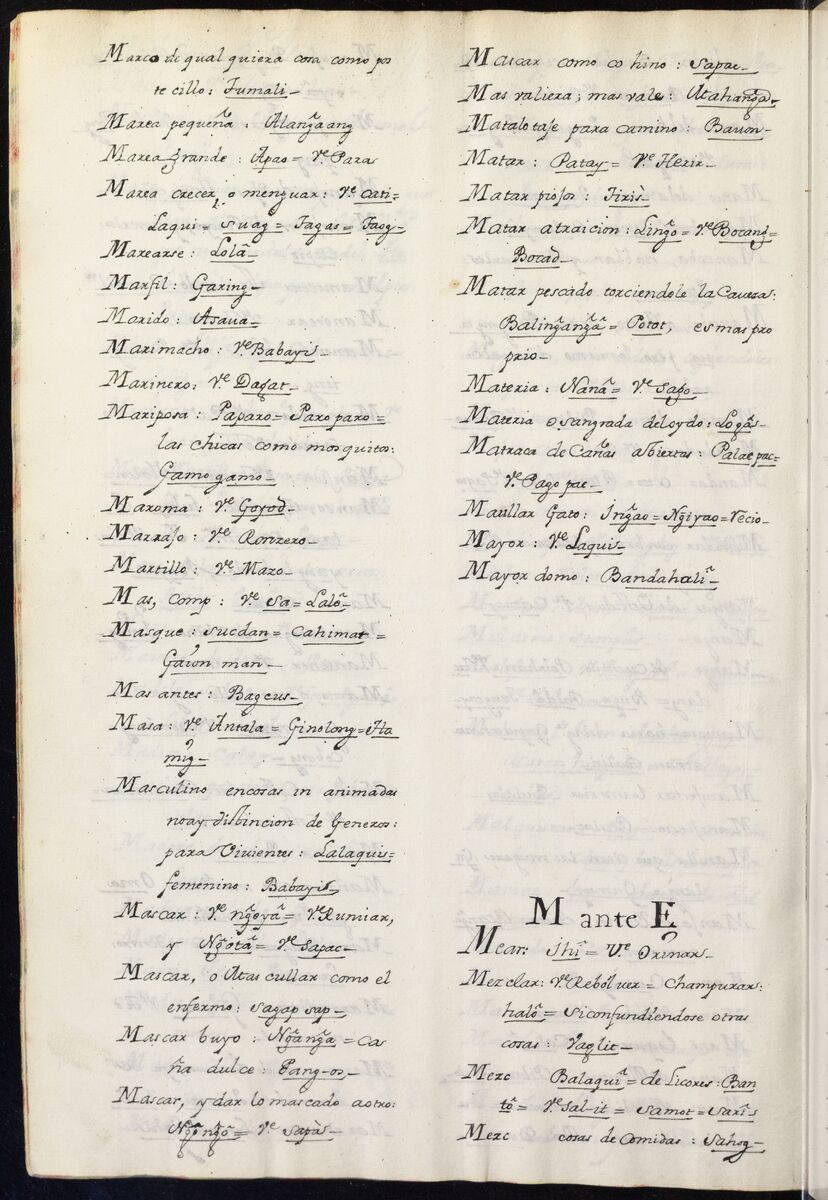 Marco de qual quiera cosa como pos
te cillo: Tumali_
Marea pequeña: Alangãang
Marea grande: Apao= Vᵉ Para
Marea crecer, o menguar: Vᵉ cati=
Laqui= suag= Tagas= Taog_
Marearse: Lolâ_
Marfil: Garing_
Marido: Asaua_
Marimacho: Vᵉ Babayis_
Marinero: Vᵉ Dagat_
Mariposa: Paparo= Paro paro=
las chicas como mosquitos:
Gamo gamo_
Maroma: Vᵉ Goyod_
Marraso: Vᵉ Ronzero_
Martillo: Vᵉ Mazo_
Mas, comp: Vᵉ sa= Lalô_
Masque: sucdan= Cahimat=
Gaion man_
Mas antes: Bagcus_
Masa: Vᵉ Antala= Ginolong=Ila
mig_
Masculino encosas in animadas
noay distincion de Generos:
para Vivientes: Lalaquis=
femenino: Babayis_
Mascar: Vᵉ ngoyâ= Vᵉ Rumiar,
y Ngotâ= Vᵉ sapac_
Mascar, o Atas cullar como el
enfermo: sagap sap_
Mascar buyo: Ngãnga= Ca
ña dulce: Pang-os_
Mascar, y dar lo mascado aotro:
Ngõngõ= Vᵉ sapàs_
Mascar como cohino: sapac_
Mas valiera; mas vale: Atahangã_
Matalotaje para camino: Bauon_
Matar: Patay= Vᵉ Herir_
Matar piojos: Tiris_
Matar atraicion: Lingõ= Vᵉ Bocang=
Bocad_
Matar pescado torciendole la Caueza:
Balingãngã= Potot, es mas pro
prio_
Materia: Nanâ= Vᵉ Sago_
Materia o sangrada del oydo: Logâs_
Matraca de Cañas abiertas: Palae pac=
Vᵉ Pago pac_
Maullar Gato: Ingão= Ngiyao= Vecio_
Mayor: Vᵉ Laquis_
Mayor domo: Bandahalî_
M ante E
Mear: Ihî= Vᵉ Orinar_
Mezclar: Vᵉ Rebólver= Champurar:
halô= si confundiendose otras
cosas: Vaglit_
Mezc Balaquî= de Licores: Ban
tô= Vᵉ sal-it= samot= sarîs
Mezc cosas de Comidas: Sahog_